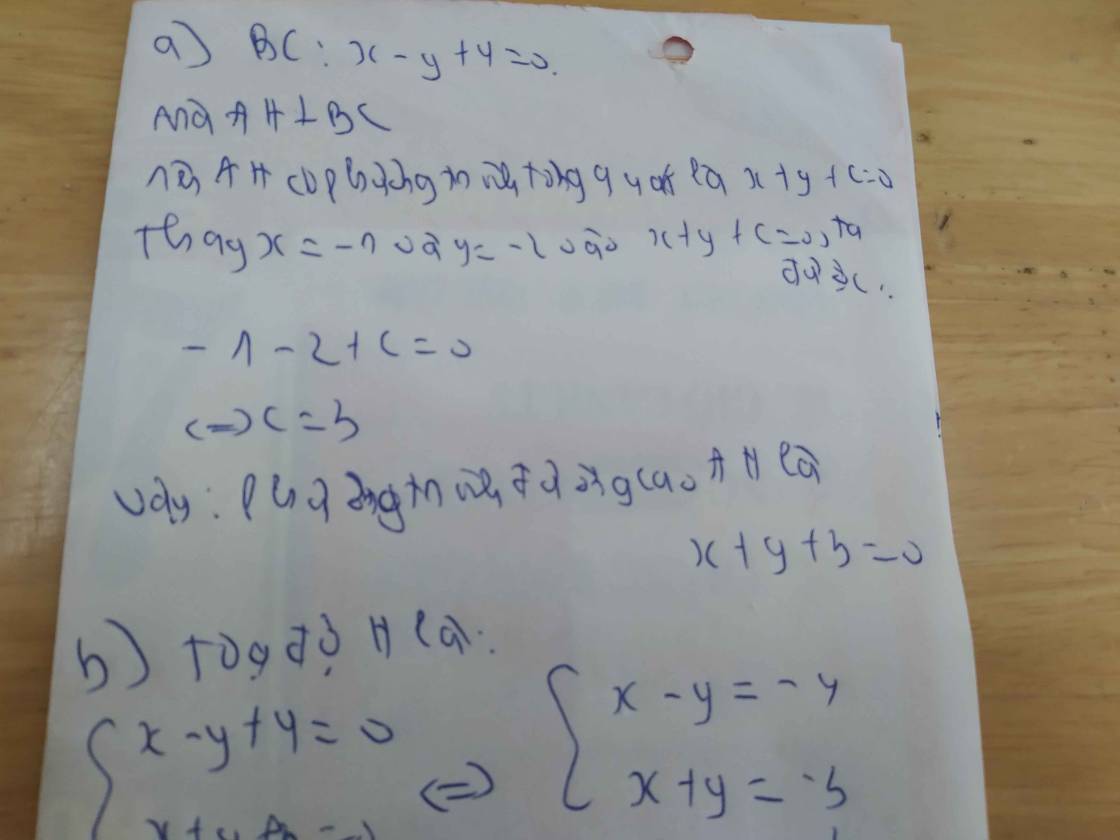 a) BC: x - y + 4 = 0.
mà AH ⊥ BC
nên AH có phương trình tổng quát là x + y + c = 0
Thay x = -1 và y = -2 vào x + y + c = 0, ta
được:
- 1 - 2 + c = 0
<=> c = 3
vậy: phương trình đường cao AH là
x + y + 3 = 0
b) Tọa độ H là:
{ x - y + 4 = 0 <=> { x - y = - 4
x + y = -3